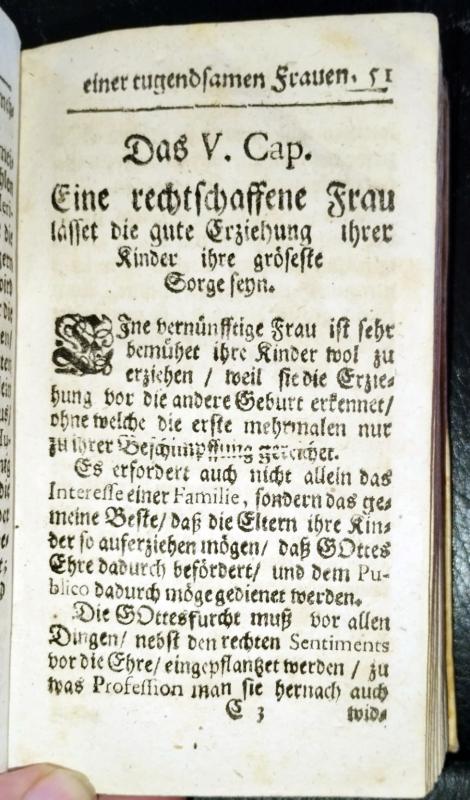 einer tugendsamen Frauen. 51
Das V. Cap.
Eine rechtschaffene Frau
lässet die gute Erziehung ihrer
Kinder ihre gröseste
Sorge seyn.
EIne vernünfftige Frau ist sehr
bemühet ihre Kinder wol zu
erziehen / weil sie die Erzie-
hung vor die andere Geburt erkennet/
ohne welche die erste mehrmalen nur
zu ihrer Beschimpffung gereichet.
Es erfordert auch nicht allein das
Interesse einer Familie, sondern das ge-
meine Beste/ daß die Eltern ihre Kin-
der so auferziehen mögen/ daß GOttes
Ehre dadurch befördert/ und dem Pu-
blico dadurch möge gedienet werden.
Die GOttesfurcht muß vor allen
Dingen/ nebst den rechten Sentiments
vor die Ehre/ eingepflantzet werden / zu
was Profession man sie hernach auch
C 3 wid-